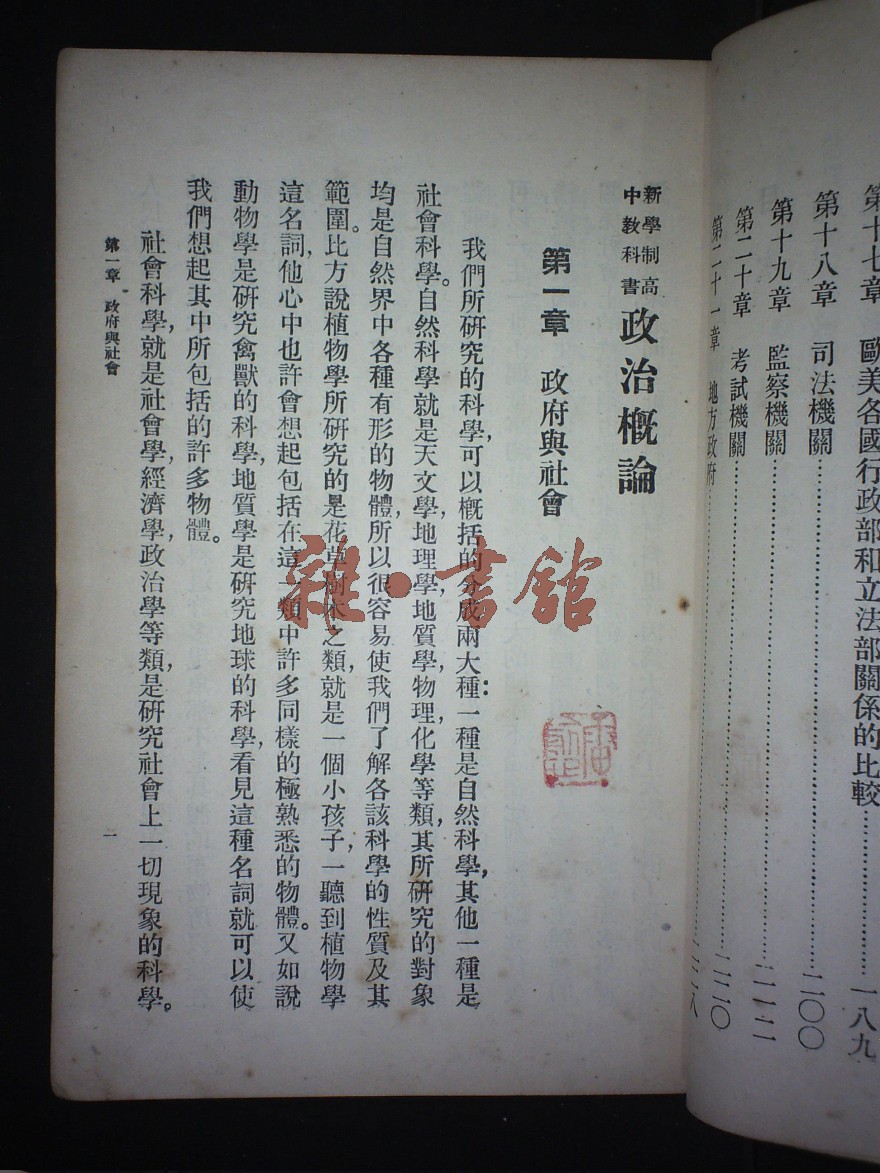 第十七章 歐美各國行政部和立法部關係的比較……一八九
第十八章 司法機關……二〇〇
第十九章 監察機關……二一二
第二十章 考試機關……二二〇
第二十一章 地方政府……二二八
新學制高中教科書 政治概論
第一章 政府與社會
我們所研究的科學,可以概括的分成兩大種:一種是自然科學,其他一種是
社會科學。自然科學就是天文學,地理學,地質學,物理,化學等類,其所研究的對象
均是自然界中各種有形的物體,所以很容易使我們了解各該科學的性質及其
範圍。比方說植物學所研究的是花草樹木之類,就是一個小孩子,一聽到植物學
這名詞,他心中也許會想起包括在這一類中許多同樣的極熟悉的物體。又如說
動物學是研究禽獸的科學,地質學是研究地球的科學,看見這種名詞就可以使
我們想起其中所包括的許多物體。
社會科學,就是社會學,經濟學,政治學等類,是研究社會上一切現象的科學。
第一章 政府與社會
一
雜·書館